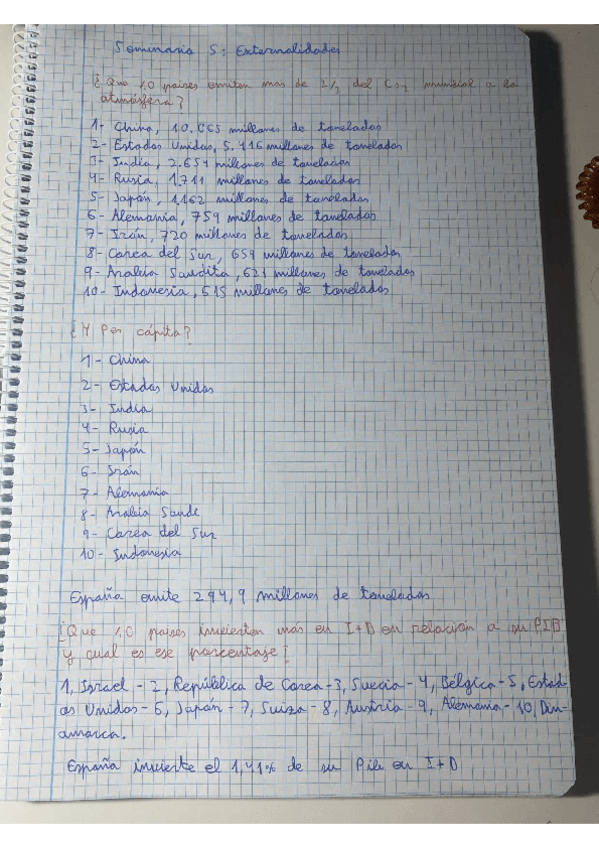 Seminario 5: Externalidades
¿Que 10 paises emiten mas de 2/3 del CO2 mundial a la
atmósfera?
1- China, 10.065 millones de toneladas
2- Estados Unidos, 5.416 millones de toneladas
3- India, 2.654 millones de toneladas
4- Rusia, 1.711 millones de toneladas
5- Japón, 1.162 millones de toneladas
6- Alemania, 759 millones de toneladas
7- Irán, 720 millones de toneladas
8- Corea del Sur, 659 millones de toneladas
9- Arabia Saudita, 621 millones de toneladas
10- Indonesia, 615 millones de toneladas
¿Y Per cápita?
1- China
2- Estados Unidos
3- India
4- Rusia
5- Japón
6- Irán
7- Alemania
8- Arabia Saude
9- Corea del Sur
10- Indonesia
España emite 294,9 millones de toneladas
¿Que 10 paises invierten más en I+D en relacion a su PIB
y cual es ese porcentaje?
1, Israel - 2, República de Corea - 3, Suecia - 4, Bélgica - 5, Estad-
os Unidos - 6, Japón - 7, Suiza - 8, Austria - 9, Alemania - 10, Din-
amarca.
España invierte el 1,41% de su Pib en I+D